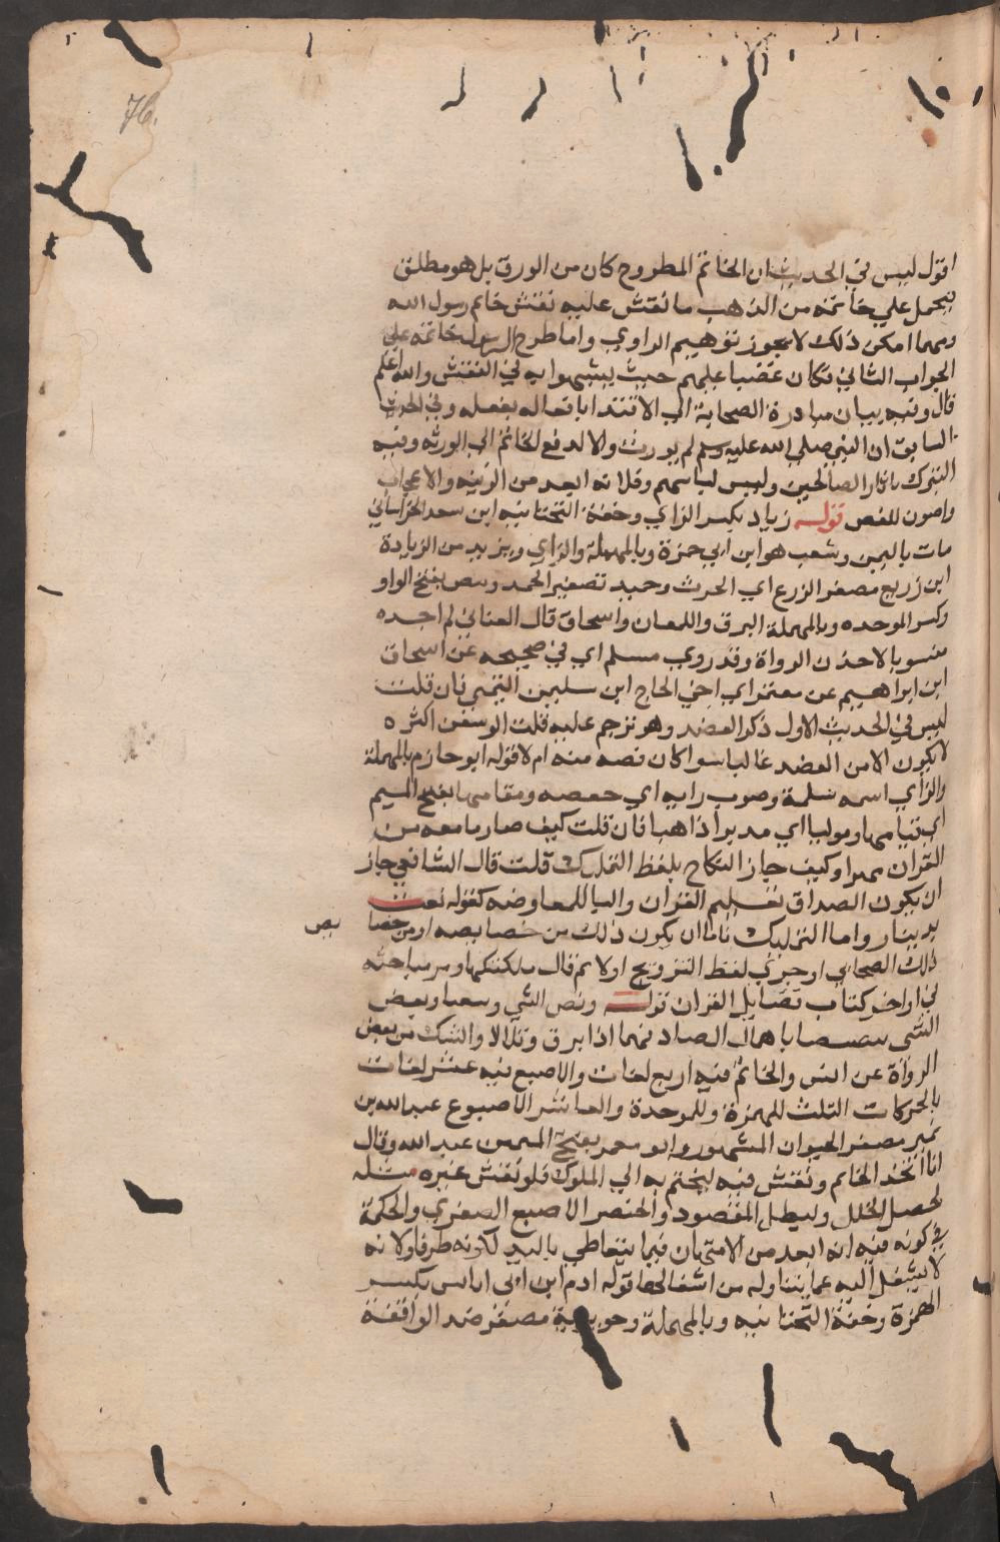 76.
اقول ليس في الحديث ان الخاتم المطروح كان من الورق بل هو مطلق
فيحمل علي خاتمه من الذهب ما نقش عليه نقش خاتم رسول الله
ومهما امكن ذلك لا يجوز توهيم الراوي واما طرح الرسول خاتمه علي
الجواب الثاني فكان غضبا عليهم حيث يشبهوا به في النقش والله اعلم
قال وفيه بيان مبادرة الصحابة الي الاقتدا بافعاله بفعله وفي الحديث
السابق ان النبي صلي الله عليه وسلم لم يورث والا لدفع الخاتم الي الورثة وفيه
التبرك باثار الصالحين ولبس لباسهم وقلانه ابعد من الزينه والاعجاب
واصون للفص قوله زياد بكسر الزاي وخفة التحتانيه ابن سعد الخراساني
مات باليمن وشعيب هو ابن ابي حمزة وبالمهملة والزاي ويزيد من الزيادة
ابن زريع مصغر الزرع اي الحرث وحميد تصغير الحمد وبيص بفتح الواو
وكسر الموحده وبالمهملة البرق واللمعان واسحاق قال الغساني لم اجده
منسوبا لاحد من الرواة وقد روي مسلم اي في صحيحه عن اسحاق
ابن ابراهيم عن معتمر اي اخي الحاج ابن سليمن التيمي فان قلت
ليس في الحديث الاول ذكر الفص وهو ترجم عليه قلت الوبيص اكثره
لا يكون الا من الفص غالبا سوا كان فصه منه ام لا قوله ابو حازم بالمهملة
والزاي اسمه سلمة وصوب رايه اي خفضه ومقامها بفتح الميم
اي قيامها وموليا اي مدبرا ذاهبا فان قلت كيف صار ما معه من
القران مهرا وكيف جاز النكاح بلفظ التمليك قلت قال الشافعي جاز
ان يكون الصداق تعليم القران والبا للمعاوضه كقوله بعت
بدينار واما التمليك فاما ان يكون ذلك من خصايصه او من خصا يص
ذلك الصحابي او جري لفظ التزويج اولا ثم قال ملكتكها ومر مباحثه
في اواخر كتاب فضايل القران قوله وبص الشي وبيصا وبعض
الشي بصيصا باهمال الصاد فيهما اذا برق وتلالا والشك من بعض
الرواة عن انس والخاتم فيه اربع لغات والاصبع فيه عشر لغات
بالحركات الثلث للهمزة وللموحدة والعاشر الاصبوع عبد الله بن
نمير مصغر الحيوان المشهور وابو معمر بفتح الميمين عبد الله وقال
انا اتخذ الخاتم ونقش فيه ليختم به الي الملوك فلو نقش غيره مثله
لحصل الخلل وليبطل المقصود والخنصر الاصبع الصغري والحكمة
في كونه فيه انه ابعد من الامتهان فيما يتعاطي باليد لكونه طرفا ولانه
لا يشغل اليد عما يتناوله من اشغالها قوله ادم ابن ابي اياس بكسر
الهمزة وخفة التحتانيه وبالمهملة وجويرية مصغر ضد الواقفة